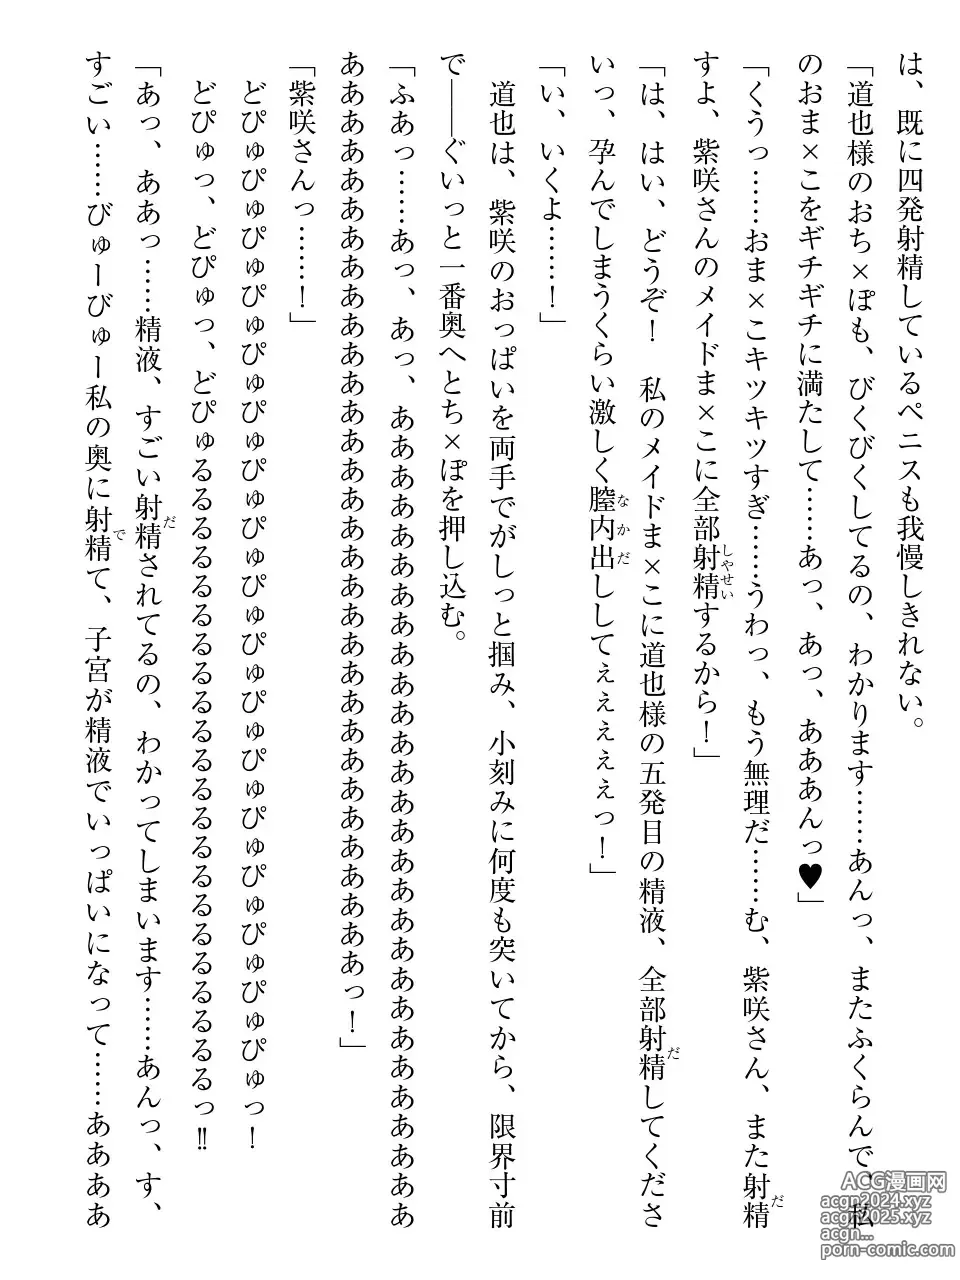 は、既に四発射精しているペニスも我慢しきれない。
「道也様のおち×ぽも、びくびくしてるの、わかります……あんっ、またふくらんで、私
のおま×こをギチギチに満たして……あっ、あっ、あああんっ♥」
「くうっ……おま×こキツキツすぎ……うわっ、もう無理だ……む、紫咲さん、また射精だ
すよ、紫咲さんのメイドま×こに全部射精しやせいするから！」
「は、はい、どうぞ！　私のメイドま×こに道也様の五発目の精液、全部射精だしてくださ
いっ、孕んでしまうくらい激しく膣内出なかだししてぇぇぇぇぇっ！」
「い、いくよ……！」
　道也は、紫咲のおっぱいを両手でがしっと掴み、小刻みに何度も突いてから、限界寸前
で――ぐいっと一番奥へとち×ぽを押し込む。
「ふあっ……あっ、あっ、ああああああああああああああああああああああああああああ
ああああああああああああああああああああああああああああああああっ！」
「紫咲さんっ……！」
　どぴゅぴゅぴゅぴゅぴゅぴゅぴゅぴゅぴゅぴゅぴゅぴゅぴゅぴゅぴゅぴゅぴゅっ！
　どぴゅっ、どぴゅっ、どぴゅるるるるるるるるるるるるるるるるるるるるるるっ‼
「あっ、ああっ……精液、すごい射精だされてるの、わかってしまいます……あんっ、す、
すごい……びゅーびゅー私の奥に射精でて、子宮が精液でいっぱいになって……ああああ
ACG漫画网
acgn2024.xyz
acgn2025.xyz
acgn...
porn-comic.com